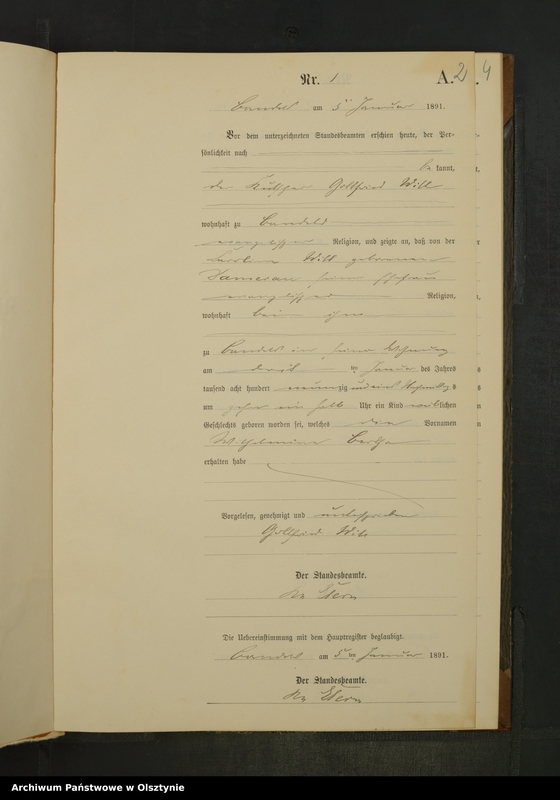 Nr. 1
A. 2
4
am 5 Januar 1891.
Vor dem unterzeichneten Standesbeamten erschien heute, der Per-
sönlichkeit nach
be kannt,
de Gottfried Will
wohnhaft zu
evangelischer Religion, und zeigte an, daß von der
Will geborenen
seiner Ehefrau
evangelischer Religion,
wohnhaft bei ihm
zu in seiner Wohnung
am drei ten Januar des Jahres
tausend acht hundert neunzig und eins Vormittags
um zehn ein halb Uhr ein Kind weiblichen
Geschlechts geboren worden sei, welches die Vornamen
Wilhelmine Bertha
erhalten habe
Vorgelesen, genehmigt und unterschrieben
Gottfried Will
Der Standesbeamte.
Die Uebereinstimmung mit dem Hauptregister beglaubigt.
am 5 ten Januar 1891.
Der Standesbeamte.
Archiwum Państwowe w Olsztynie